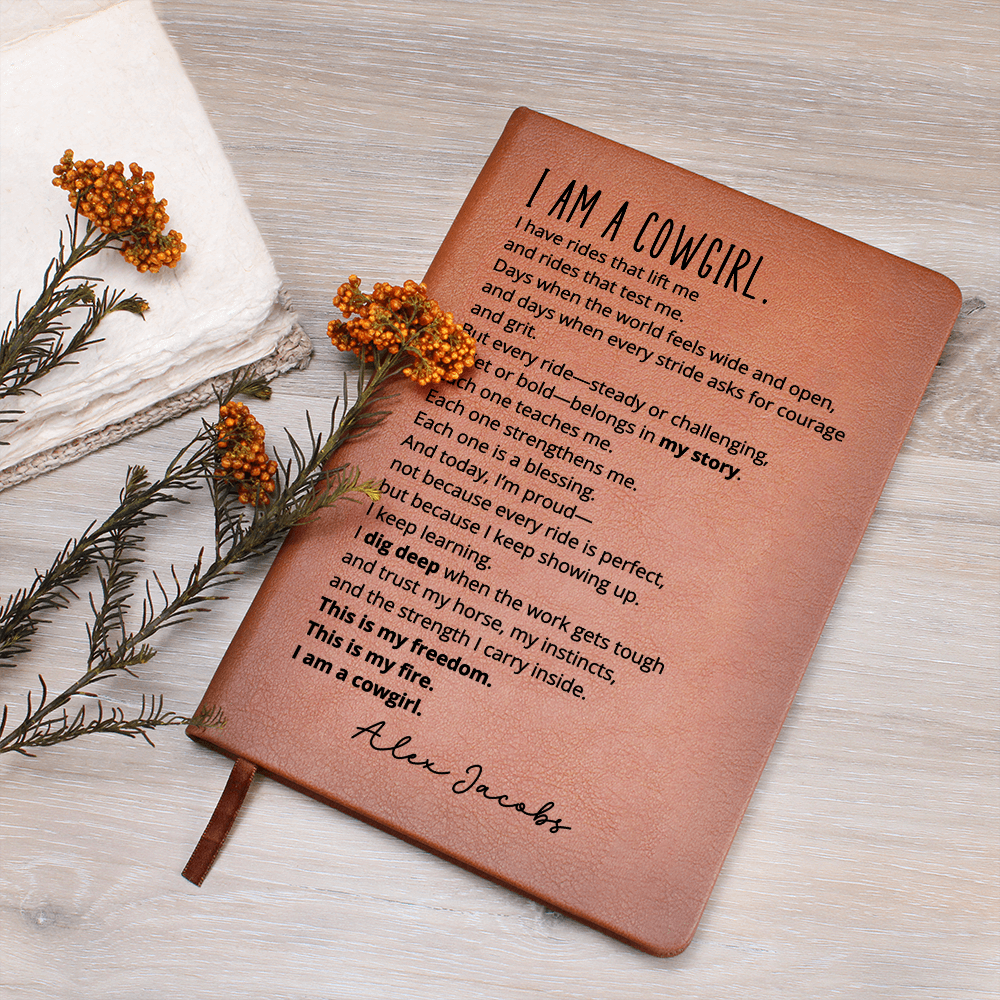 I AM A COWGIRL.
I have rides that lift me
and rides that test me.
Days when the world feels wide and open,
and days when every stride asks for courage
and grit.
But every ride—steady or challenging,
or bold—belongs in my story.
Each one teaches me.
Each one strengthens me.
Each one is a blessing.
And today, I'm proud—
not because every ride is perfect,
but because I keep showing up.
I keep learning.
I dig deep when the work gets tough
and trust my horse, my instincts,
and the strength I carry inside.
This is my freedom.
This is my fire.
I am a cowgirl.
Alex Jacobs